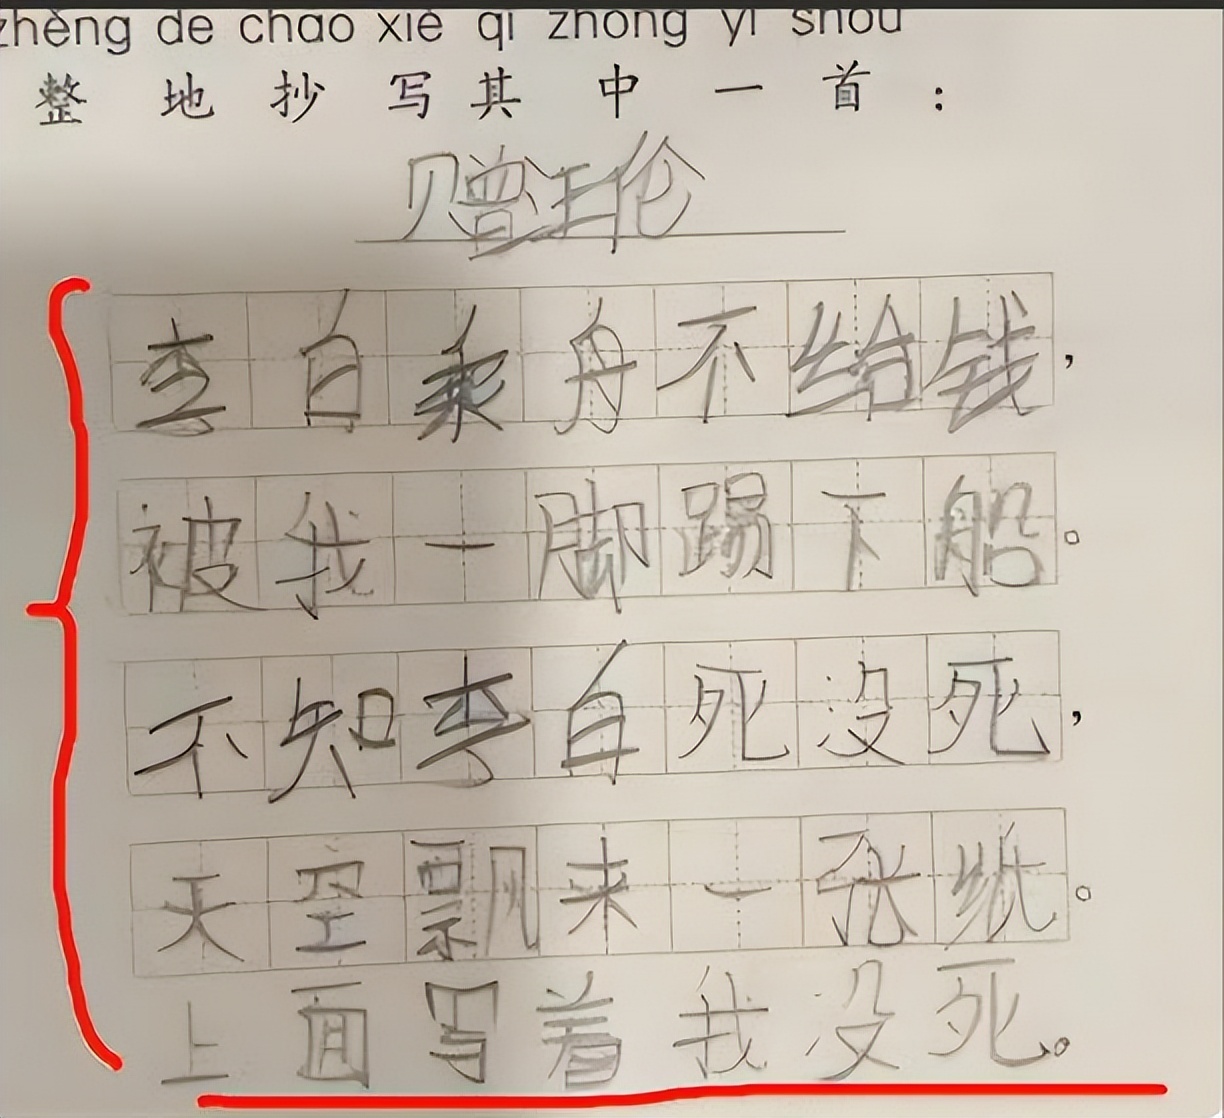 zhěng de chāo xiě qí zhōng yī shǒu
整地抄写其中一首：
赠汪伦
李白乘舟不给钱，
被我一脚踢下船。
不知李白死没死，
天空飘来一张纸。
上面写着我没死。